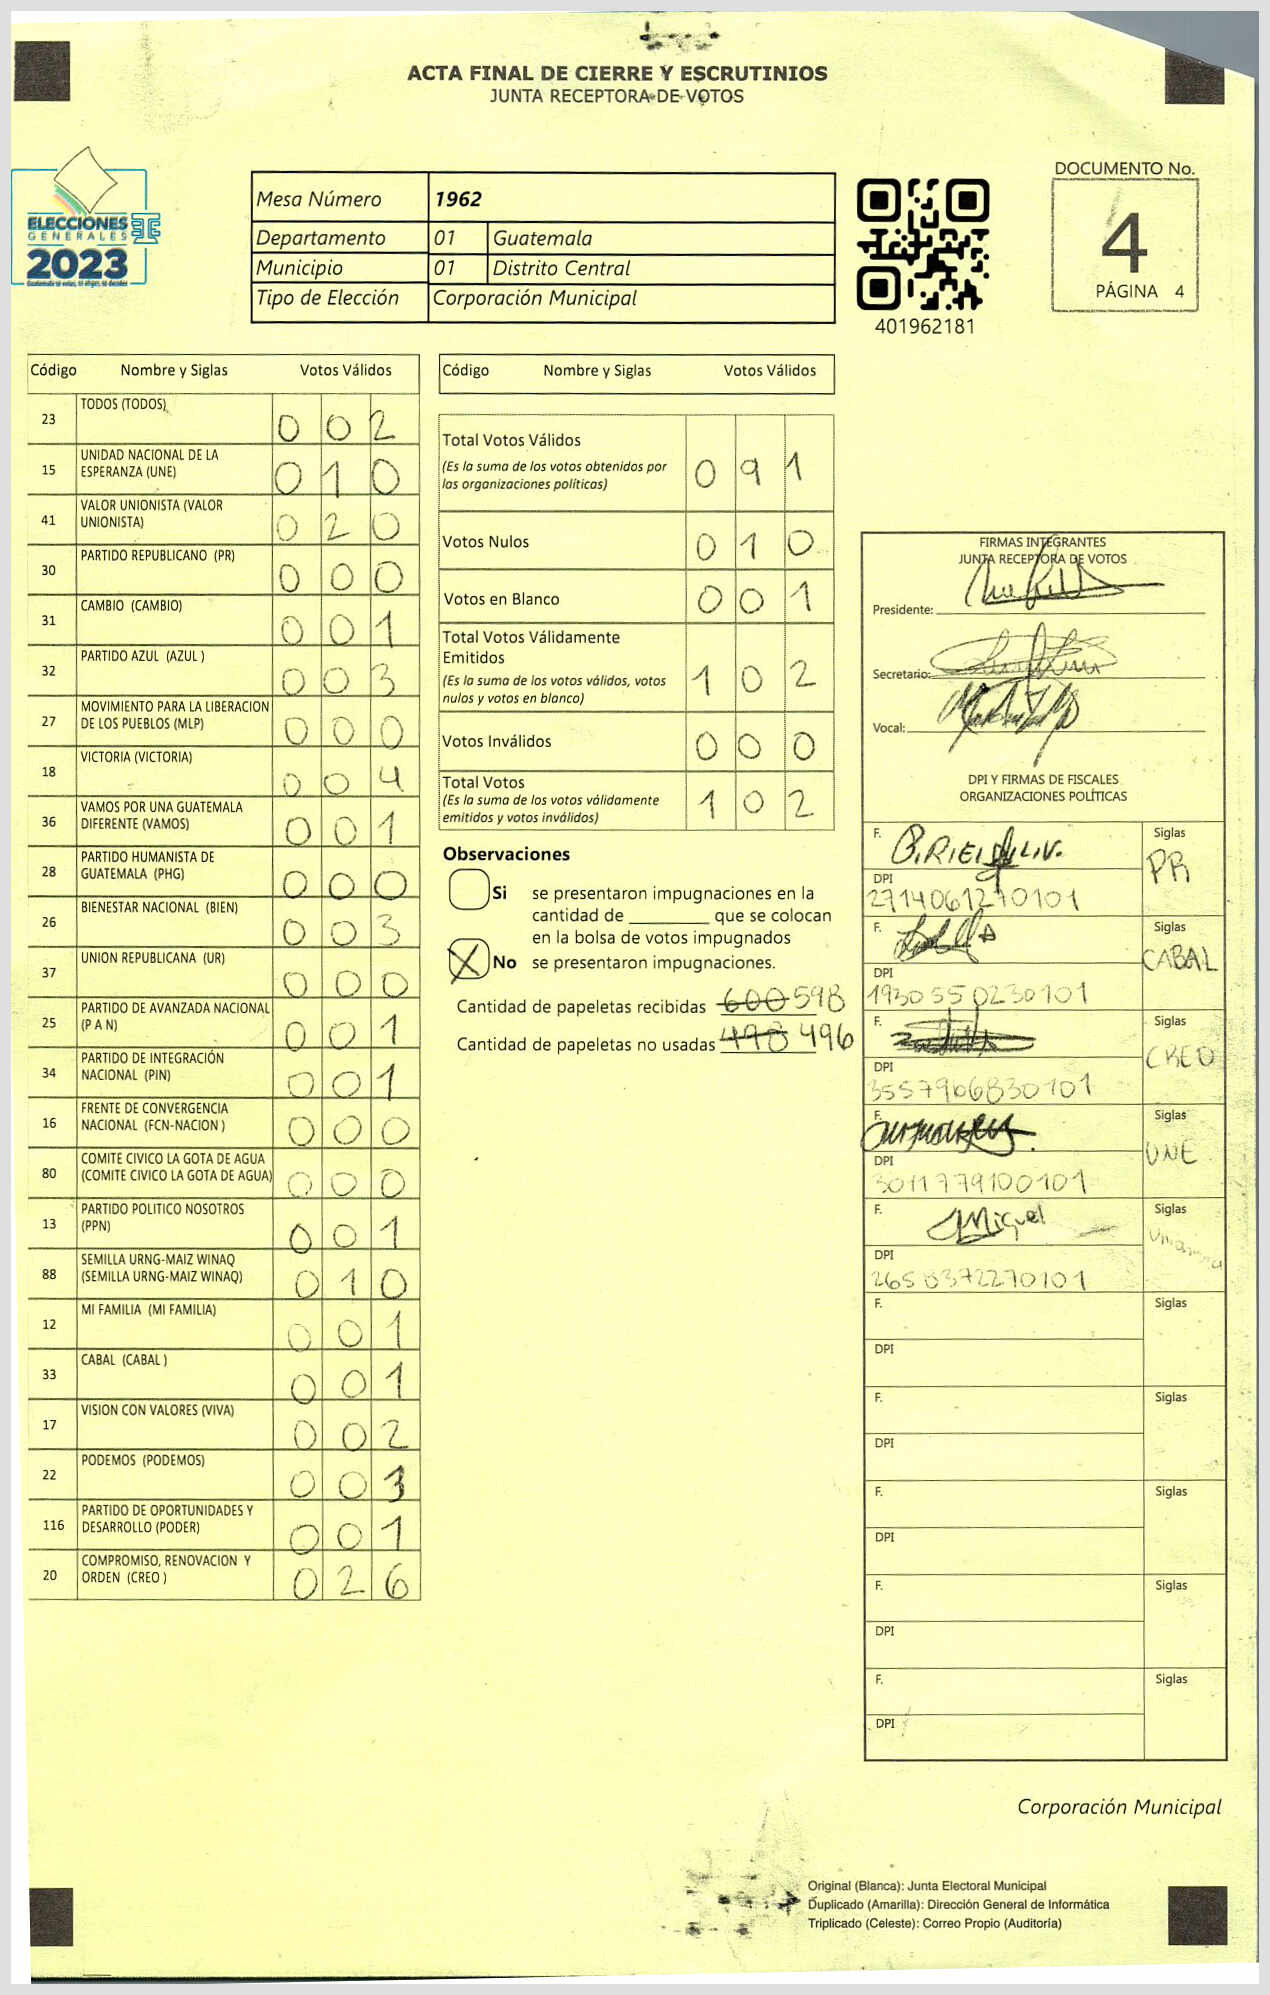 ACTA FINAL DE CIERRE Y ESCRUTINIOS
JUNTA RECEPTORA DE VOTOS
ELECCIONES
GENERALES
2023
Guatemala te votas, tú eliges, tú decides
Mesa Número 1962
Departamento 01 Guatemala
Municipio 01 Distrito Central
Tipo de Elección Corporación Municipal
401962181
DOCUMENTO No.
4
PÁGINA 4
Código Nombre y Siglas Votos Válidos
23 TODOS (TODOS) 0 0 2
15 UNIDAD NACIONAL DE LA
ESPERANZA (UNE) 0 1 0
41 VALOR UNIONISTA (VALOR
UNIONISTA) 0 2 0
30 PARTIDO REPUBLICANO (PR) 0 0 0
31 CAMBIO (CAMBIO) 0 0 1
32 PARTIDO AZUL (AZUL ) 0 0 3
27 MOVIMIENTO PARA LA LIBERACION
DE LOS PUEBLOS (MLP) 0 0 0
18 VICTORIA (VICTORIA) 0 0 4
36 VAMOS POR UNA GUATEMALA
DIFERENTE (VAMOS) 0 0 1
28 PARTIDO HUMANISTA DE
GUATEMALA (PHG) 0 0 0
26 BIENESTAR NACIONAL (BIEN) 0 0 3
37 UNION REPUBLICANA (UR) 0 0 0
25 PARTIDO DE AVANZADA NACIONAL
(P A N) 0 0 1
34 PARTIDO DE INTEGRACIÓN
NACIONAL (PIN) 0 0 1
16 FRENTE DE CONVERGENCIA
NACIONAL (FCN-NACION ) 0 0 0
80 COMITE CIVICO LA GOTA DE AGUA
(COMITE CIVICO LA GOTA DE AGUA) 0 0 0
13 PARTIDO POLITICO NOSOTROS
(PPN) 0 0 1
88 SEMILLA URNG-MAIZ WINAQ
(SEMILLA URNG-MAIZ WINAQ) 0 1 0
12 MI FAMILIA (MI FAMILIA) 0 0 1
33 CABAL (CABAL ) 0 0 1
17 VISION CON VALORES (VIVA) 0 0 2
22 PODEMOS (PODEMOS) 0 0 3
116 PARTIDO DE OPORTUNIDADES Y
DESARROLLO (PODER) 0 0 1
20 COMPROMISO, RENOVACION Y
ORDEN (CREO ) 0 2 6
Código Nombre y Siglas Votos Válidos
Total Votos Válidos
(Es la suma de los votos obtenidos por
las organizaciones políticas) 0 9 1
Votos Nulos 0 1 0
Votos en Blanco 0 0 1
Total Votos Válidamente
Emitidos
(Es la suma de los votos válidos, votos
nulos y votos en blanco) 1 0 2
Votos Inválidos 0 0 0
Total Votos
(Es la suma de los votos válidamente
emitidos y votos inválidos) 1 0 2
Observaciones
Si se presentaron impugnaciones en la
cantidad de ________ que se colocan
en la bolsa de votos impugnados
X No se presentaron impugnaciones.
Cantidad de papeletas recibidas 600 598
Cantidad de papeletas no usadas 498 496
FIRMAS INTEGRANTES
JUNTA RECEPTORA DE VOTOS
Presidente:
Secretario:
Vocal:
DPI Y FIRMAS DE FISCALES
ORGANIZACIONES POLÍTICAS
F. Siglas
PR
DPI
2714061270101
F. Siglas
CABAL
DPI
1930550230101
F. Siglas
CREO
DPI
3557966830101
F. Siglas
UNE
DPI
3011779100101
F. Miguel Siglas
DPI
2650372270101
F. Siglas
DPI
F. Siglas
DPI
F. Siglas
DPI
F. Siglas
DPI
F. Siglas
DPI
Corporación Municipal
Original (Blanca): Junta Electoral Municipal
Duplicado (Amarilla): Dirección General de Informática
Triplicado (Celeste): Correo Propio (Auditoría)